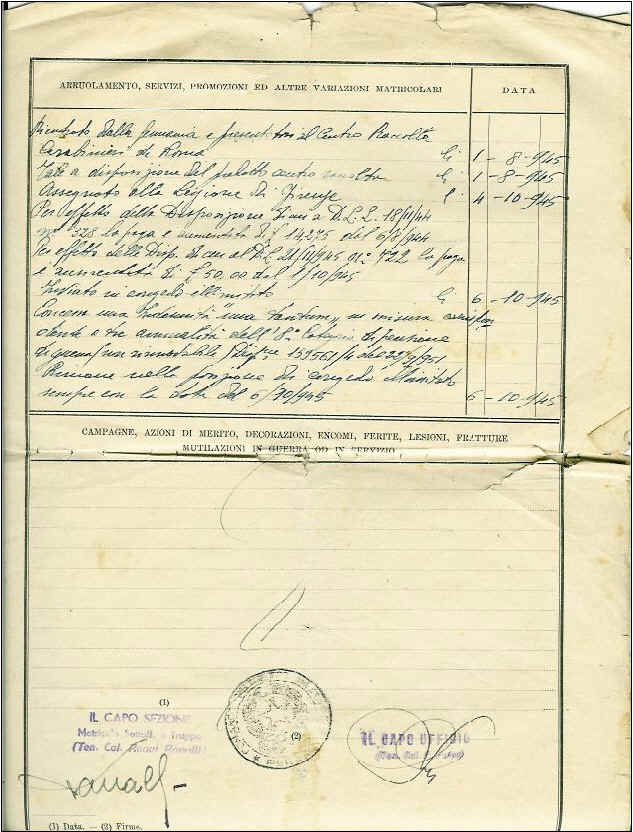 ARRUOLAMENTO, SERVIZI, PROMOZIONI ED ALTRE VARIAZIONI MATRICOLARI
DATA
Rientrato dalla Germania e presentatosi al Centro Raccolta
Carabinieri di Roma li 1 - 8 - 945
Tale a disposizione del centro raccolta li 1 - 8 - 945
Assegnato alla Legione di Firenze li 4 - 10 - 945
Per effetto della Disposizione di cui a D.L.L. 18/11/44
n° 328 la paga è aumentata di £ 14,275 dal 6/8/944
Per effetto delle Disp. di cui al D.L. 21/11/945 n° 722 la paga
è aumentata di £ 50,00 dal 1/10/945
Inviato in congedo illimitato li 6 - 10 - 945
Concessa una Indennità una tantum, in misura corrispon
dente a tre annualità dell'8ª Categoria di pensione
di guerra non 22/9/951
Rimane nella posizione di congedo illimitato
sempre con la data del 6/10/945 6 - 10 - 945
CAMPAGNE, AZIONI DI MERITO, DECORAZIONI, ENCOMI, FERITE, LESIONI, FRATTURE
MUTILAZIONI IN GUERRA OD IN SERVIZIO
(1)
IL CAPO SEZIONE
(Ten. Col.
(2)
IL CAPO UFFICIO
(1) Data. — (2) Firme.